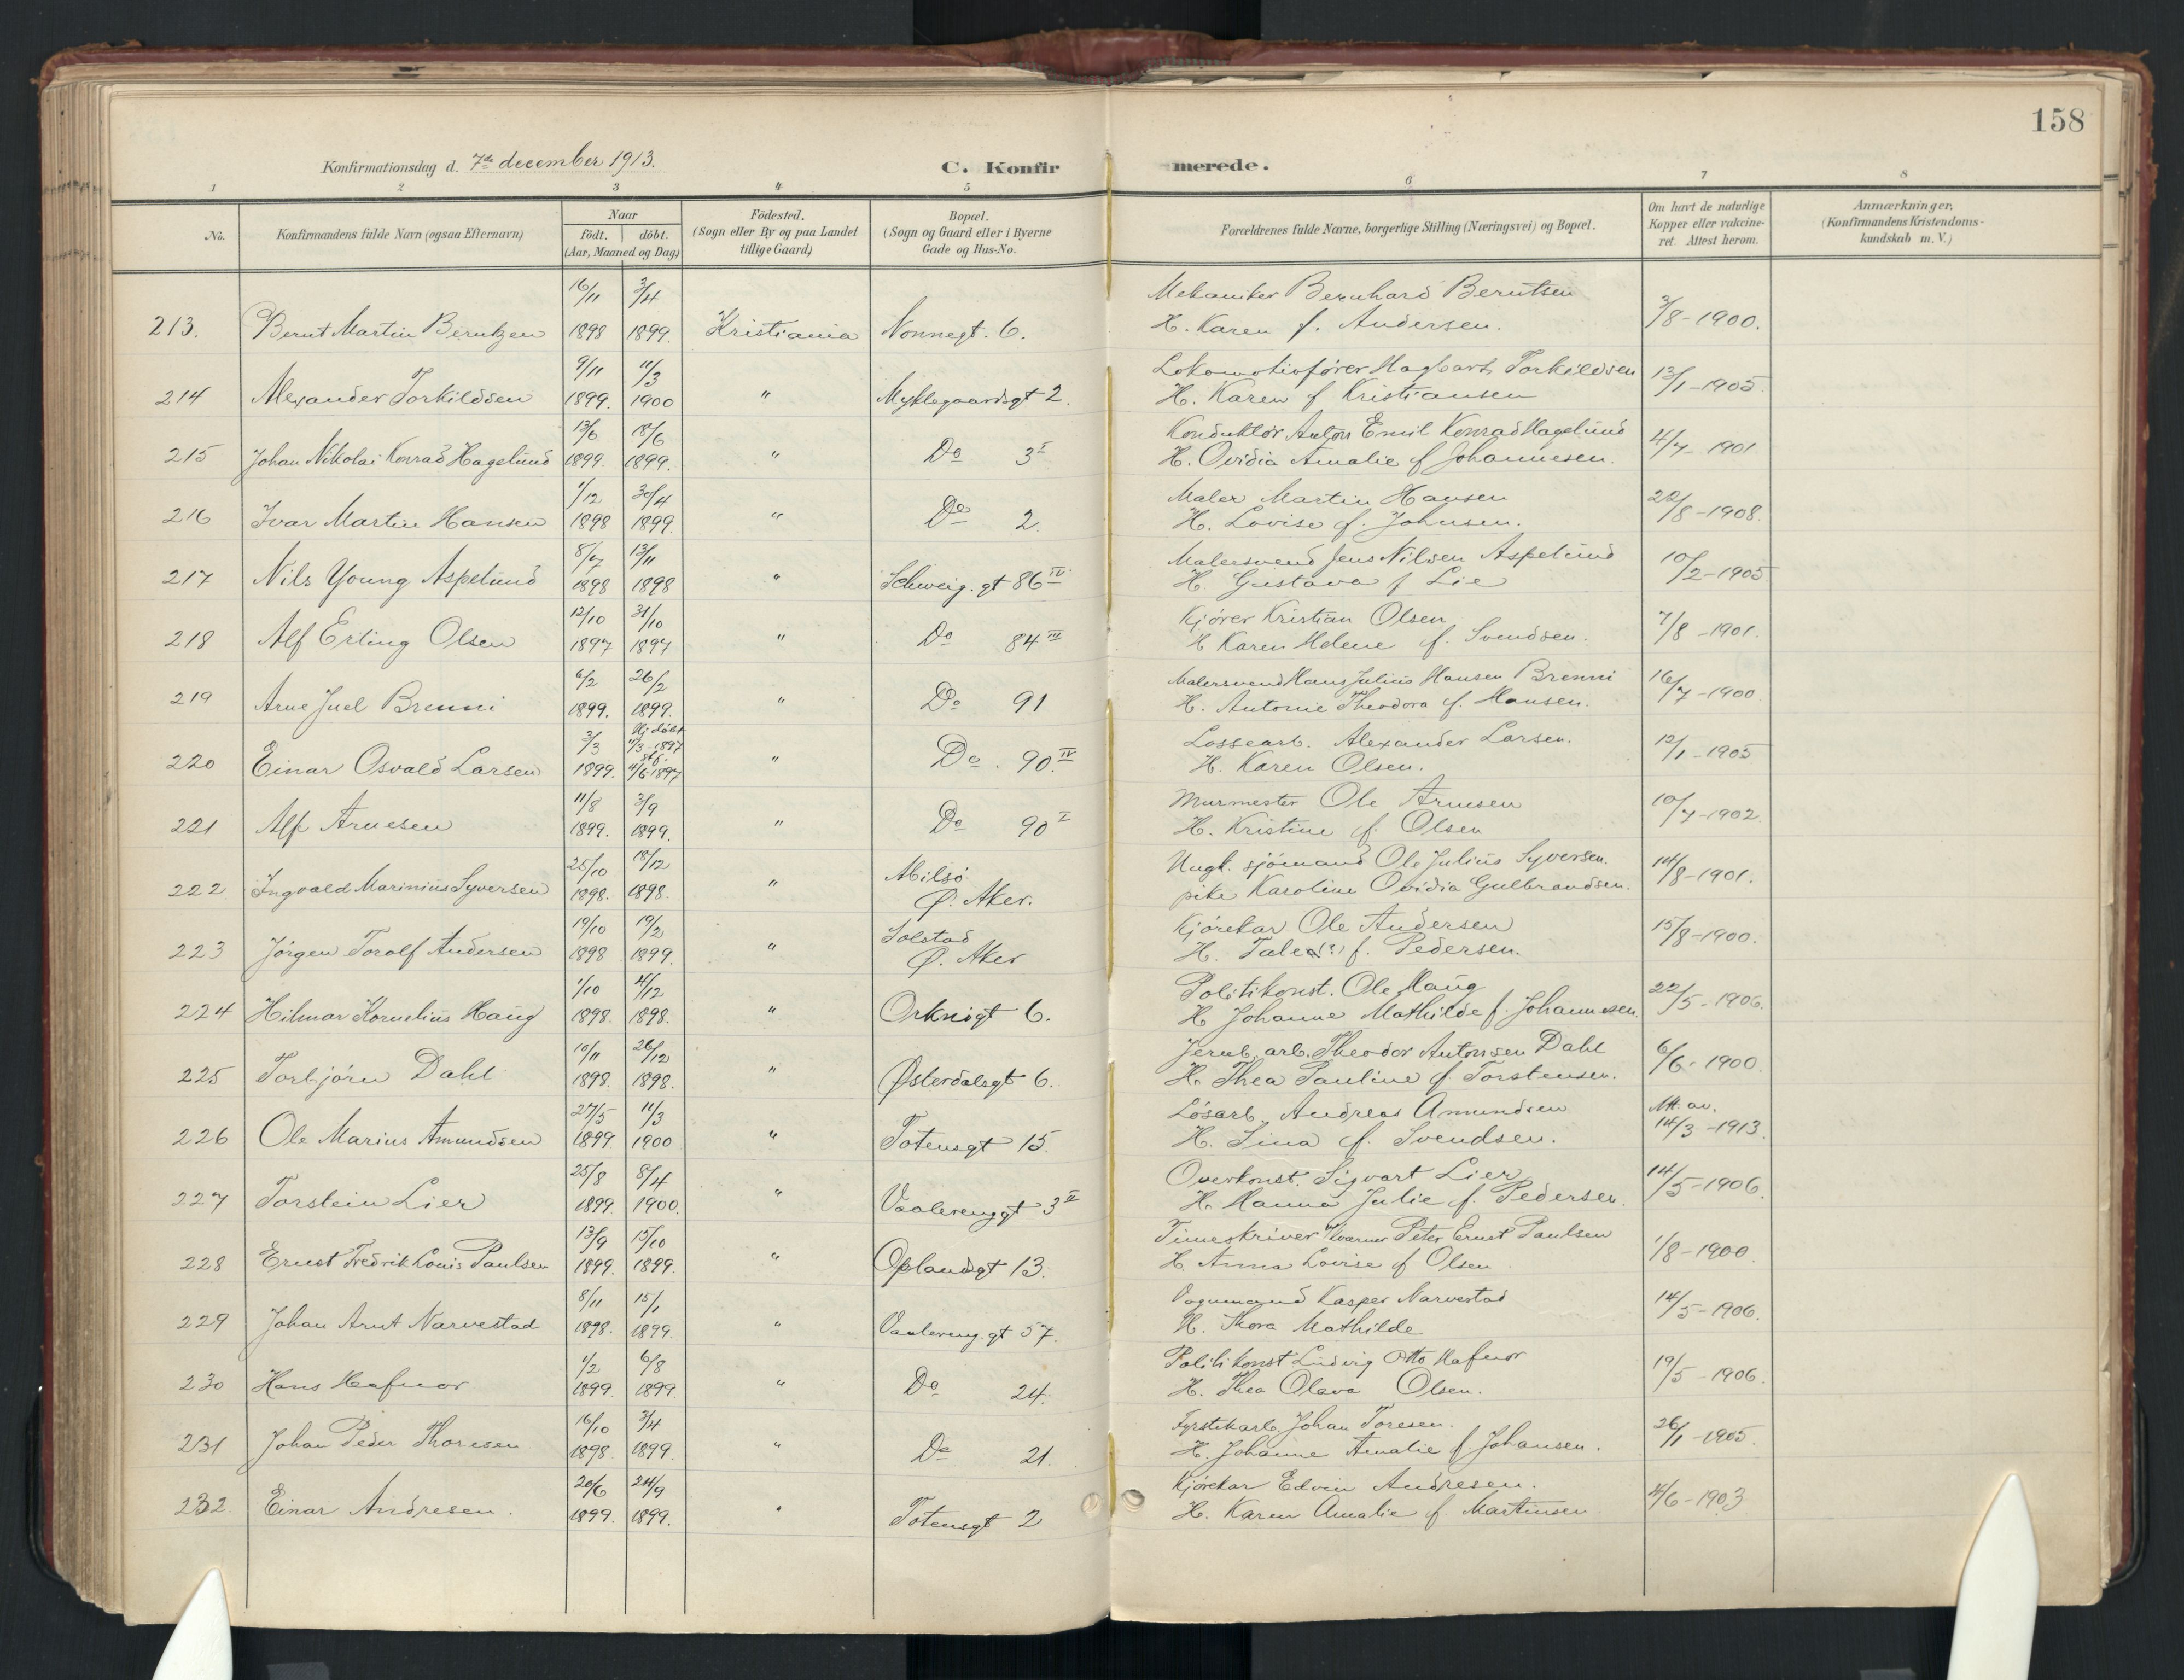 158
Konfirmationsdag d. 7de december 1913.
C. Konfirmerede.
1 2 3 4 5 6 7 8
No.
Konfirmandens fulde Navn (ogsaa Efternavn)
Naar
födt. döbt.
(Aar, Maaned og Dag)
Födested.
(Sogn eller By og paa Landet
tillige Gaard)
Bopæl.
(Sogn og Gaard eller i Byerne
Gade og Hus-No.
Forældrenes fulde Navne, borgerlige Stilling (Næringsvei) og Bopæl.
Om havt de naturlige
Kopper eller vakcine-
ret. Attest herom.
Anmærkninger,
(Konfirmandens Kristendoms-
kundskab m. V.)
16/11 3/4 Mekaniker Bernhard Berntsen
213. Bernt Martin Berntzen 1898 1899. Kristiania Nonnegt. 6. H. Karen f. Andersen. 3/8-1900.
9/11 11/3 Lokomotivfører Hagbart Torkildsen
214 Alexander Torkildsen 1899. 1900 " Myklegaardsgt 2. H. Karen f Kristiansen 13/1-1905.
13/6 18/6 Konduktör Anton Emil Konrad Hagelund
215 Johan Nikolai Konrad Hagelund 1899. 1899. " Do 3 I H. Ovidia Amalie f Johannesen. 4/7-1901
1/12 30/4 Maler Martin Hansen
216 Ivar Martin Hansen 1898 1899. " Do 2. H. Lovise f. Johnsen. 22/8-1908.
8/7 13/11 Malersvend Jens Nilsen Aspelund
217 Nils Young Aspelund 1898 1898 " Schweig. gt 86 IV H. Gustava f Lie 10/2-1905
12/10 31/10 Kjörer Kristian Olsen
218 Alf Erling Olsen 1897 1897 " Do 84 III H Karen Helene f. Svendsen. 7/8-1901.
6/2 26/2 Malersvend Hans Julius Hansen Brenni
219 Arne Juel Brenni 1899. 1899. " Do 91 H. Antonie Theodora f. Hansen. 16/7-1900
3/3 Hj. döbt 11/3-1897 Lossearb. Alexander Larsen.
220 Einar Osvald Larsen 1899. 4/6-1897 " Do. 90. IV H. Karen Olsen. 12/1-1905
11/8 3/9 Murmester Ole Arnesen
221 Alf Arnesen 1899. 1899. " Do 90 I H. Kristine f. Olsen 10/7-1902.
25/10 18/12 Abilsö Ungk. sjömand Ole Julius Syversen.
222 Ingvald Marinius Syversen 1898. 1898. " Ø. Aker. pike Karoline Ovidia Gulbrandsen. 14/8-1901.
19/10 19/2 Solstad Kjörekar Ole Andersen
223 Jörgen Torolf Andersen 1898 1899. " Ø. Aker H. Talea (?) f. Pedersen. 15/8-1900.
1/10 4/12 Politikonst. Ole Haug
224 Hilmar Kornelius Haug 1898. 1898. " Orknögt 6. H. Johanne Mathilde f. Johannesen. 22/5-1906.
10/11 26/12 Jernb. arb. Theodor Antonsen Dahl
225 Torbjörn Dahl 1898. 1898. " Østerdalsgt 6. H. Thea Pauline f. Torstensen. 6/6-1900
27/5 11/3 Lösarb. Andreas Amundsen Att. av.
226 Ole Marius Amundsen 1899 1900 " Totensgt 15. H. Lina f. Svendsen. 14/3-1913.
25/8 8/4 Overkonst. Sigvart Lier
227 Torstein Lier 1899. 1900. " Vaalerenggt 3 II H. Hanna Julie f. Pedersen. 14/5-1906.
13/9 15/10 Timeskriver Peter Ernst Paulsen
228 Ernst Fredrik Louis Paulsen 1899. 1899. " Oplandsgt 13. H. Anna Lovise f Olsen. 1/8-1900.
8/11 15/1 Vognmand Kasper Narvestad
229 Johan Arnt Narvestad 1898. 1899. " Vaalereng. gt 57. H. Thora Mathilde 14/5-1906.
1/2 6/8 Politikonst Ludvig Otto Hafnor
230 Hans Hafnor 1899. 1899. " Do 24. H. Thea Olava Olsen. 19/5-1906.
16/10 3/4 Fyrstikarb. Johan Toresen.
231 Johan Peder Thoresen 1898 1899. " Do 21. H. Johanne Amalie f Johansen. 26/1-1905.
20/6 24/9 Kjörekar Edvin Andresen.
232. Einar Andresen. 1899. 1899. " Totensgt 2 H. Karen Amalie f. Martinsen 4/6-1903